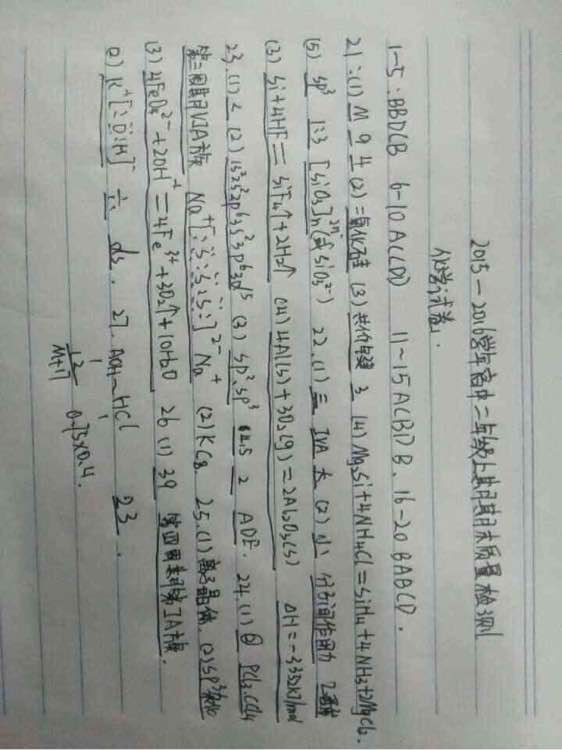 2015—2016学年高中二年级上学期期末质量检测
化学试卷.
1-5:BBDCB 6-10 ACCDD 11~15 ACBDB. 16-20 BABCD.
21:(1) M 9 4 (2)二氧化硅 (3)共价键 3 (4) Mg2Si+4NH4Cl=SiH4+4NH3+2MgCl2.
(5) sp³ 1:3 [SiO3]n²ⁿ⁻(或SiO3²⁻) 22.(1)三 IVA 大 (2)小 分子间作用力
(3) Si+4HF=SiF4↑+2H2↑ (4) 4Al(s)+3O2(g)=2Al2O3(s) ΔH=-3352kJ/mol
23.(1)< (2) 1s²2s²2p⁶3s²3p⁶3d⁵ (3) sp².sp³ 2 ADE. 24.(1)⊕ PCl3.CCl4
第三周期VIA族 Na⁺[:S:S:]²⁻Na⁺ (2)KC8. 25.(1)离子晶体. (2)sp³杂化
(3) 4FeO4²⁻+20H⁺=4Fe³⁺+3O2↑+10H2O 26(1) 39 第四周期第IA族.
(2) K⁺[:O:H]⁻ 六 ds. 27. HCl 23.
12 0.75×0.4.
M+17